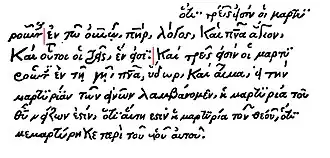 ὅτι τρεῖς εἰσιν οἱ μαρτυ
ροῦντες ἐν τῷ οὐνῷ, πηρ, λόγος, καὶ πνα ἅγιον,
καὶ οὗτοι οἱ τρεῖς ἕν εἰσι. καὶ τρεῖς εἰσιν οἱ μαρτυ
ροῦντες ἐν τῇ γῇ, πνα, ὕδωρ, καὶ αἷμα, εἰ τὴν
μαρτυρίαν τῶν ἀνων λαμβάνομεν, ἡ μαρτυρία τοῦ
θυ μείζων ἐστίν, ὅτι αὕτη ἐστὶν ἡ μαρτυρία τοῦ θεοῦ, ὅτι
μεμαρτύρηκε περὶ τοῦ αὐτοῦ.